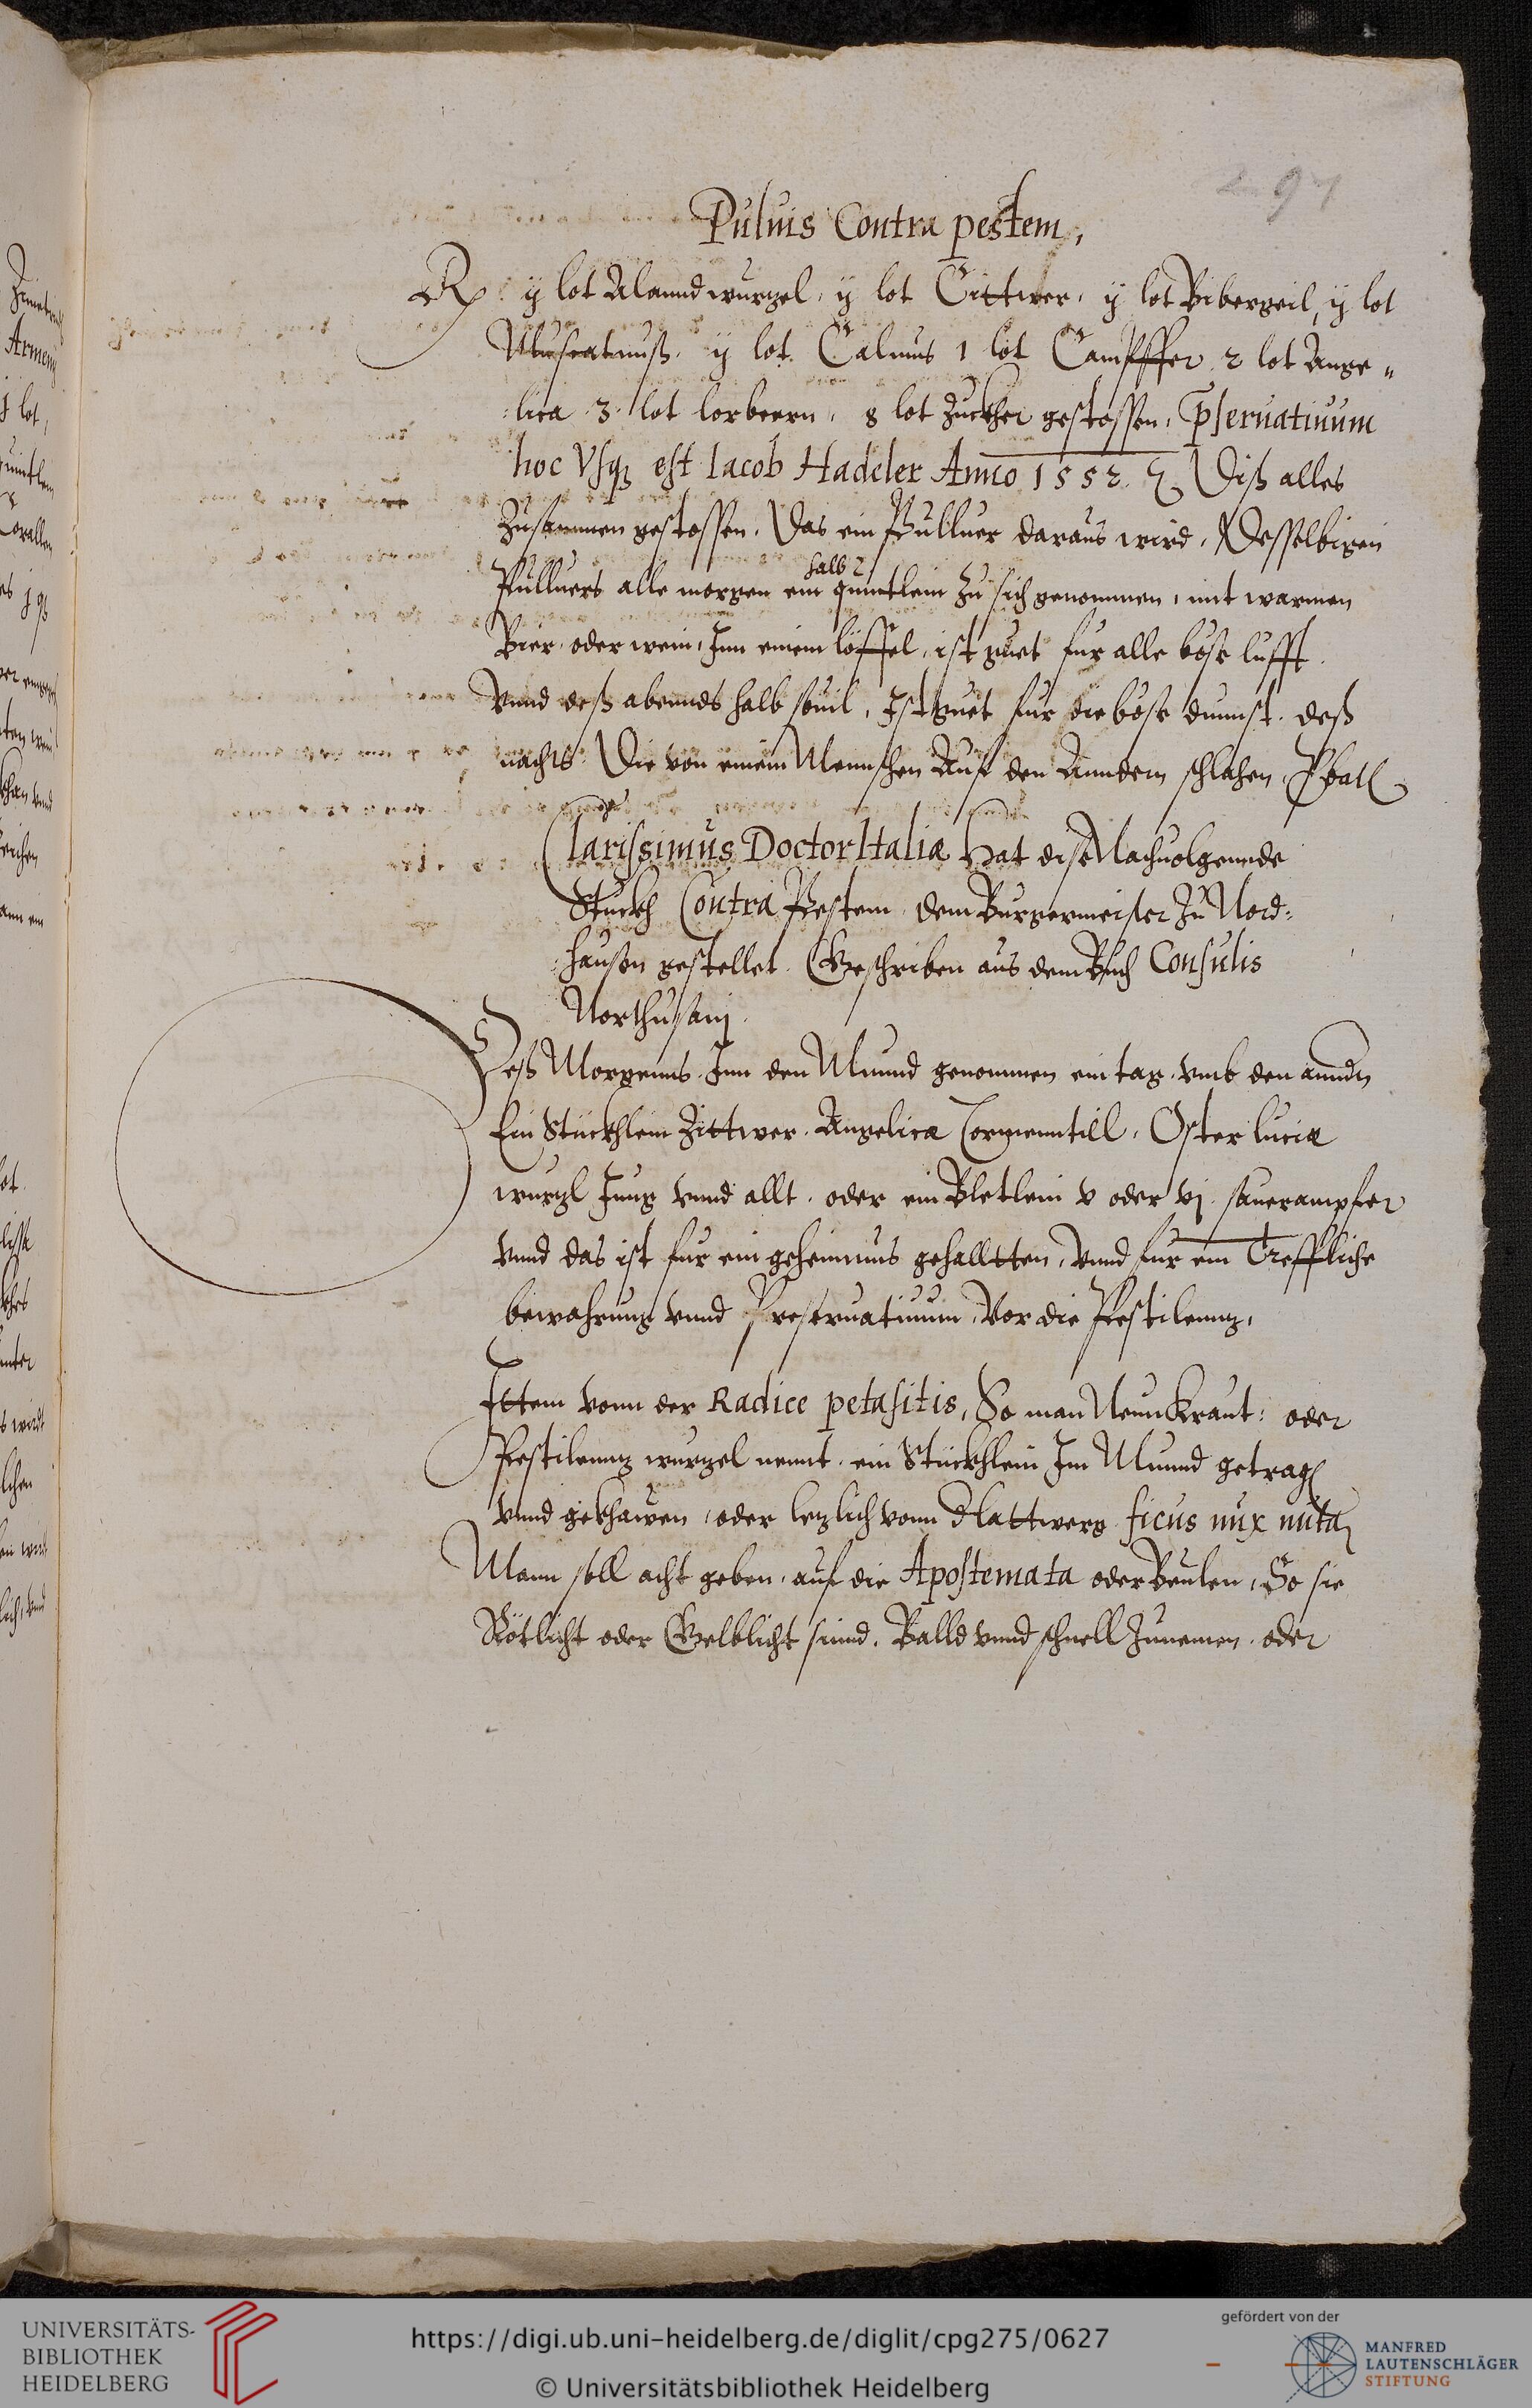 297
Puluis Contra pestem,
Rp ij lot Alanndwurzel, ij lot Cittwer, ij lot Bibergeil, ij lot
Muscatnuß. ij lot Calmus 1 lot Campffer 2 lot Ange„
lica 3 lot lorbeern, 8 lot Zuckher gestossen, p̄seruatiuum
hoc Vsq est Iacob Hadeler Anno 1552. Diß alles
Zusammen gestossen, Das ein Pulluer daraus wird, Desselbigen
halb
Pulluers alle morgen ein quintlein Zu sich genommen, mit warmen
Bier oder wein, Inn einem löffel, ist guet fur alle böse lufft.
Vnnd deß abennds halb souil, Ist guet fur die böse dunnst. deß
nachts Die von einem Mennschen Auf den Anndern schlahen,
Clarissimus Doctor Italiæ Hat dise Nachuolgennde
Stuckh Contra Pestem dem Burgermeister Zu Nord=
hausen gestellet. Geschriben aus dem Buch Consulis
Northusanj.
Deß Morgenns Inn den Munnd genommen ein tag vmb den anndn
Ein Stückhlein Zittwer. Angelica Tormenntill, Osterluciæ
wurzl Jung vnnd allt, oder ein Bletlein v oder vj. sauerampfer
vnnd das ist fur ein geheimnus gehalltten, Vnnd fur ein Treffliche
bewahrung vnnd Preseruatiuum, Vor die Pestilenntz,
Ittem vonn der Radice petasitis, So man Neunkraut: oder
Pestilenntz wurzel nennt, ein Stückhlein Im Munnd getrag
vnnd gekhawen, oder letzlich vonn dlattwerg ficus nux ruta
Mann soll acht geben, auf die Apostemata oder Beulen, So sie
Rötlicht oder Gelblicht sinnd, Balld vnnd schnell Zunemen, oder
UNIVERSITÄTS-
BIBLIOTHEK
HEIDELBERG
https://digi.ub.uni-heidelberg.de/diglit/cpg275/0627
© Universitätsbibliothek Heidelberg
gefördert von der
MANFRED
LAUTENSCHLÄGER
STIFTUNG